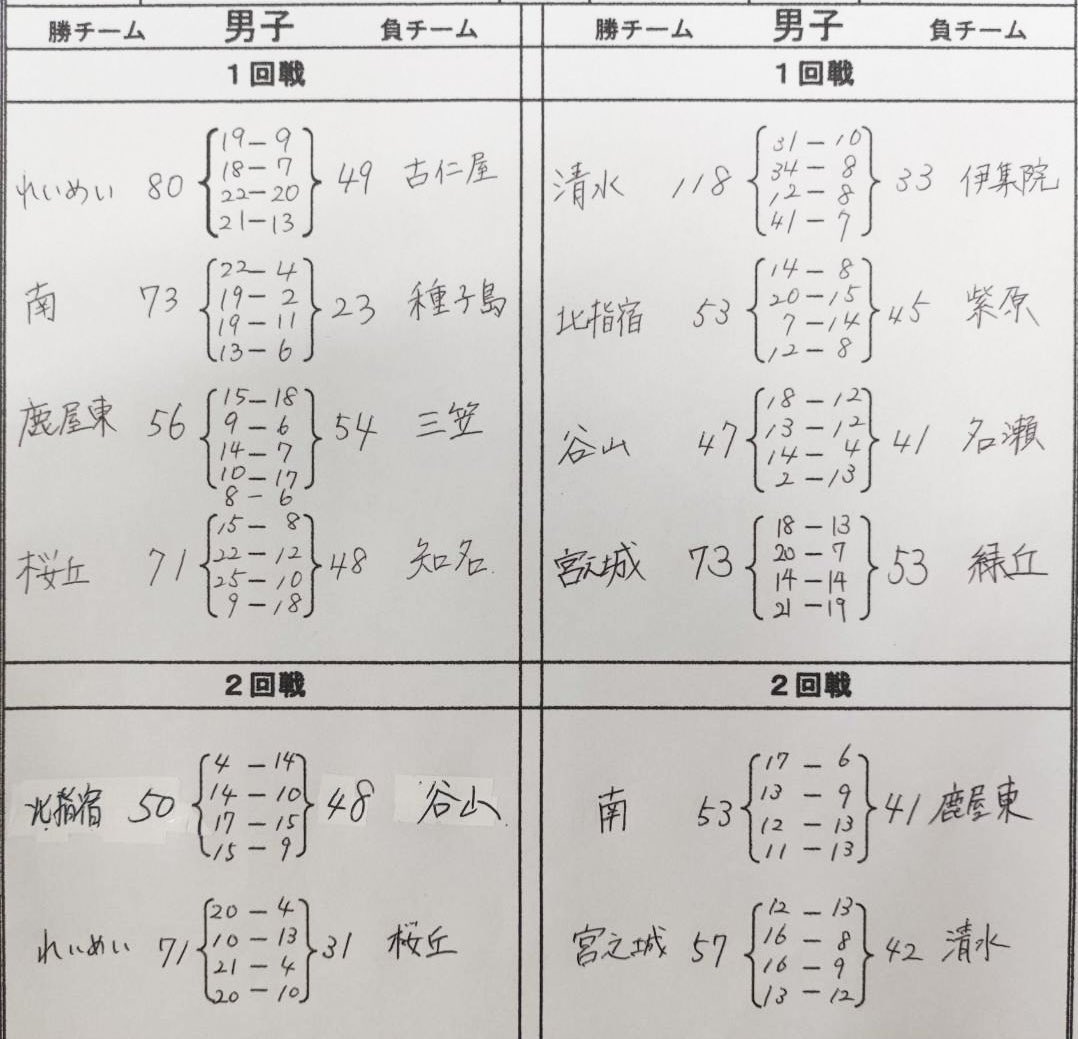 勝チーム 男子 負チーム 勝チーム 男子 負チーム
1回戦 1回戦
19-9
18-7
れいめい 80 22-20 49 古仁屋
21-13
31-10
34-8
清水 118 12-8 33 伊集院
41-7
22-4
19-2
南 73 19-11 23 種子島
13-6
14-8
20-15
北指宿 53 7-14 45 紫原
12-8
15-18
9-6
鹿屋東 56 14-7 54 三笠
10-17
8-6
18-12
13-12
谷山 47 14-4 41 名瀬
2-13
15-8
22-12
桜丘 71 25-10 48 知名
9-18
18-13
20-7
宮之城 73 14-14 53 緑丘
21-19
2回戦 2回戦
4-14
14-10
北指宿 50 17-15 48 谷山
15-9
17-6
13-9
南 53 12-13 41 鹿屋東
11-13
20-4
10-13
れいめい 71 21-4 31 桜丘
20-10
12-13
16-8
宮之城 57 16-9 42 清水
13-12